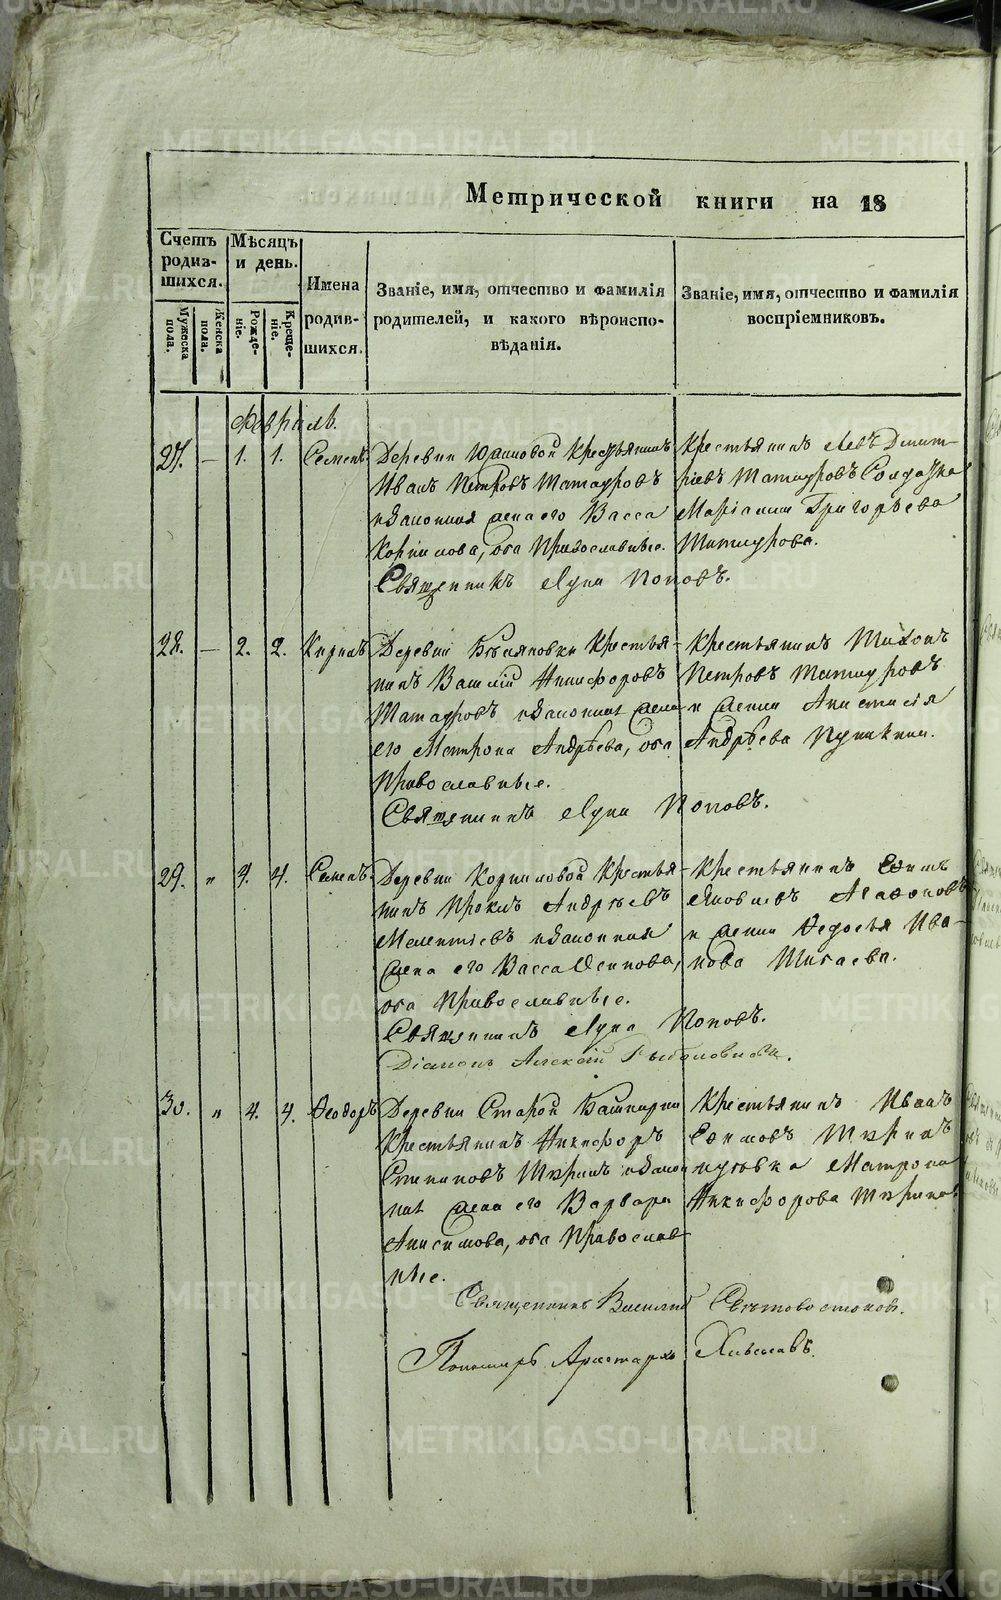 Метрической книги на 18
Счетъ родив-шихся.
Мѣсяцъ и день.
Имена родив-шихся.
Званіе, имя, отчество и фамилія
родителей, и какого вѣроиспо-
вѣданія.
Званіе, имя, отчество и фамилія
воспріемниковъ.
Мужеска пола.
Женска пола.
Рожде-ніе.
Креще-ніе.
Февраль.
27. — 1. 1. Семенъ. Деревни Юшковой Крестьянинъ
Иванъ Петровъ Татауровъ
и законная жена его Васса
Корнилова, оба Православные.
Священникъ Лука Поповъ.
Крестьянинъ Левъ Дмит-
ріевъ Татауровъ Солдатка
Маріамна Григорьева
Татаурова.
28. — 2. 2. Кирилъ Деревни Крестья-
нинъ Василій Никифоровъ
Татауровъ и законная жена
его Матрона Андрѣева, оба
Православные.
Священникъ Лука Поповъ.
Крестьянинъ Тихонъ
Петровъ Татауровъ
и Анастасія
Андрѣева
29. " 4. 4. Семенъ. Деревни Корниловой Крестья-
нинъ Проклъ Андрѣевъ
Мелентіевъ и законная
жена его Васса Осипова,
оба Православные.
Священникъ Лука Поповъ.
Діаконъ Алексій
Крестьянинъ
Яковлевъ Агафоновъ
и Ѳедосья Ива-
нова Шигаева.
30. " 4. 4. Ѳеодоръ Деревни Старой Башкарки
Крестьянинъ Никифоръ
Степановъ и закон
ная жена его Варвара
Анисимова, оба Православ
ные.
Крестьянинъ Иванъ
Матрона
Никифорова
Священникъ Василій
Пономарь Аристархъ
METRIKI.GASO-URAL.RU